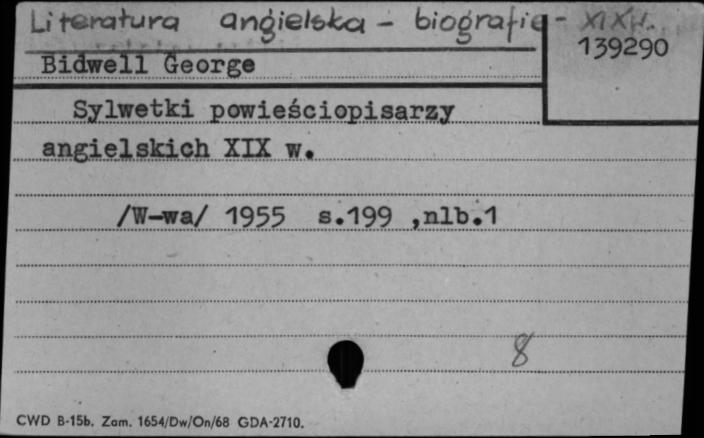 Literatura angielska - biografie - XIX w.
139290
Bidwell George
Sylwetki powieściopisarzy
angielskich XIX w.
/W-wa/ 1955 s.199 ,nlb.1
8
CWD B-15b. Zam. 1654/Dw/On/68 GDA-2710.